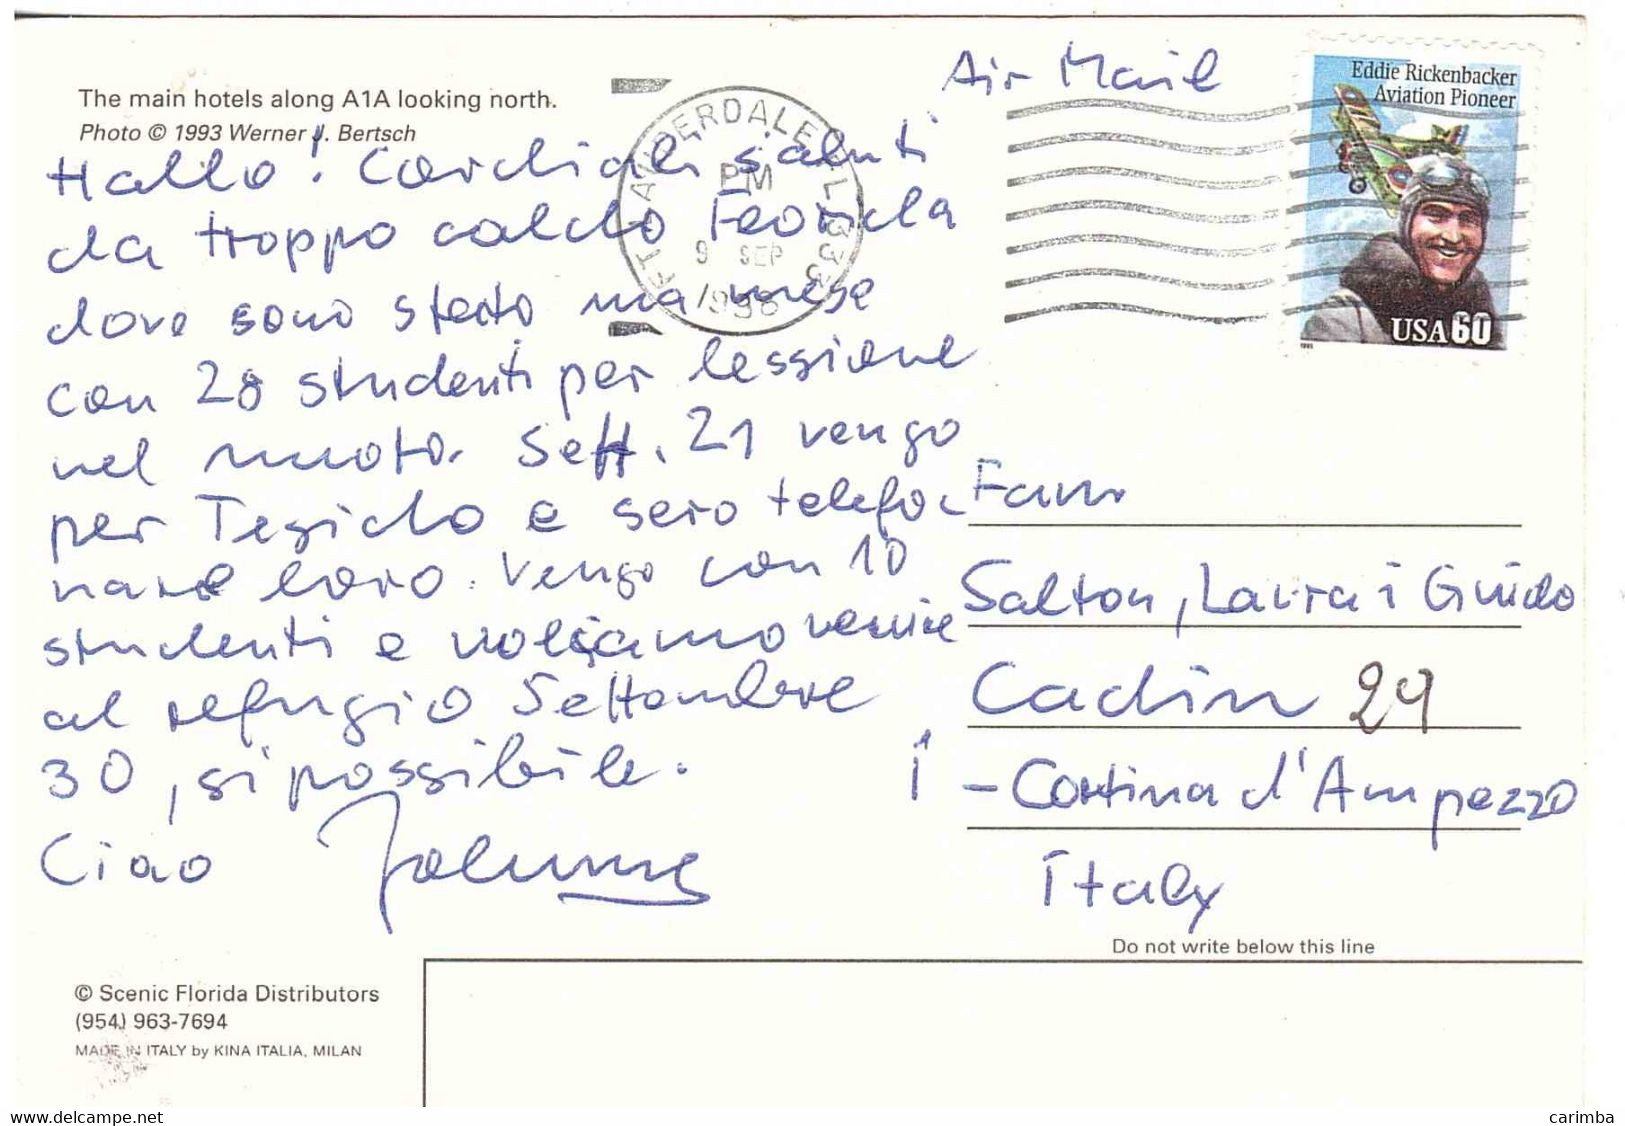 The main hotels along A1A looking north.
Photo © 1993 Werner J. Bertsch
Air Mail
FT LAUDERDALE FL 333
PM
9 SEP
1998
Eddie Rickenbacker
Aviation Pioneer
USA 60
1995
Hallo! Cordiali saluti
da troppo caldo Florida
dove sono stato una mese
con 28 studenti per lessione
nel nuoto. Sett. 21 vengo
per Tesido e sero telefo-
nare loro. Vengo con 10
studenti e voliamo venire
al refugio Settembre
30, si possibile.
Ciao
Fam
Salton, Laura i Guido
Cadin 29
I - Cortina d'Ampezzo
Italy
Do not write below this line
© Scenic Florida Distributors
(954) 963-7694
MADE IN ITALY by KINA ITALIA, MILAN
www.delcampe.net
carimba